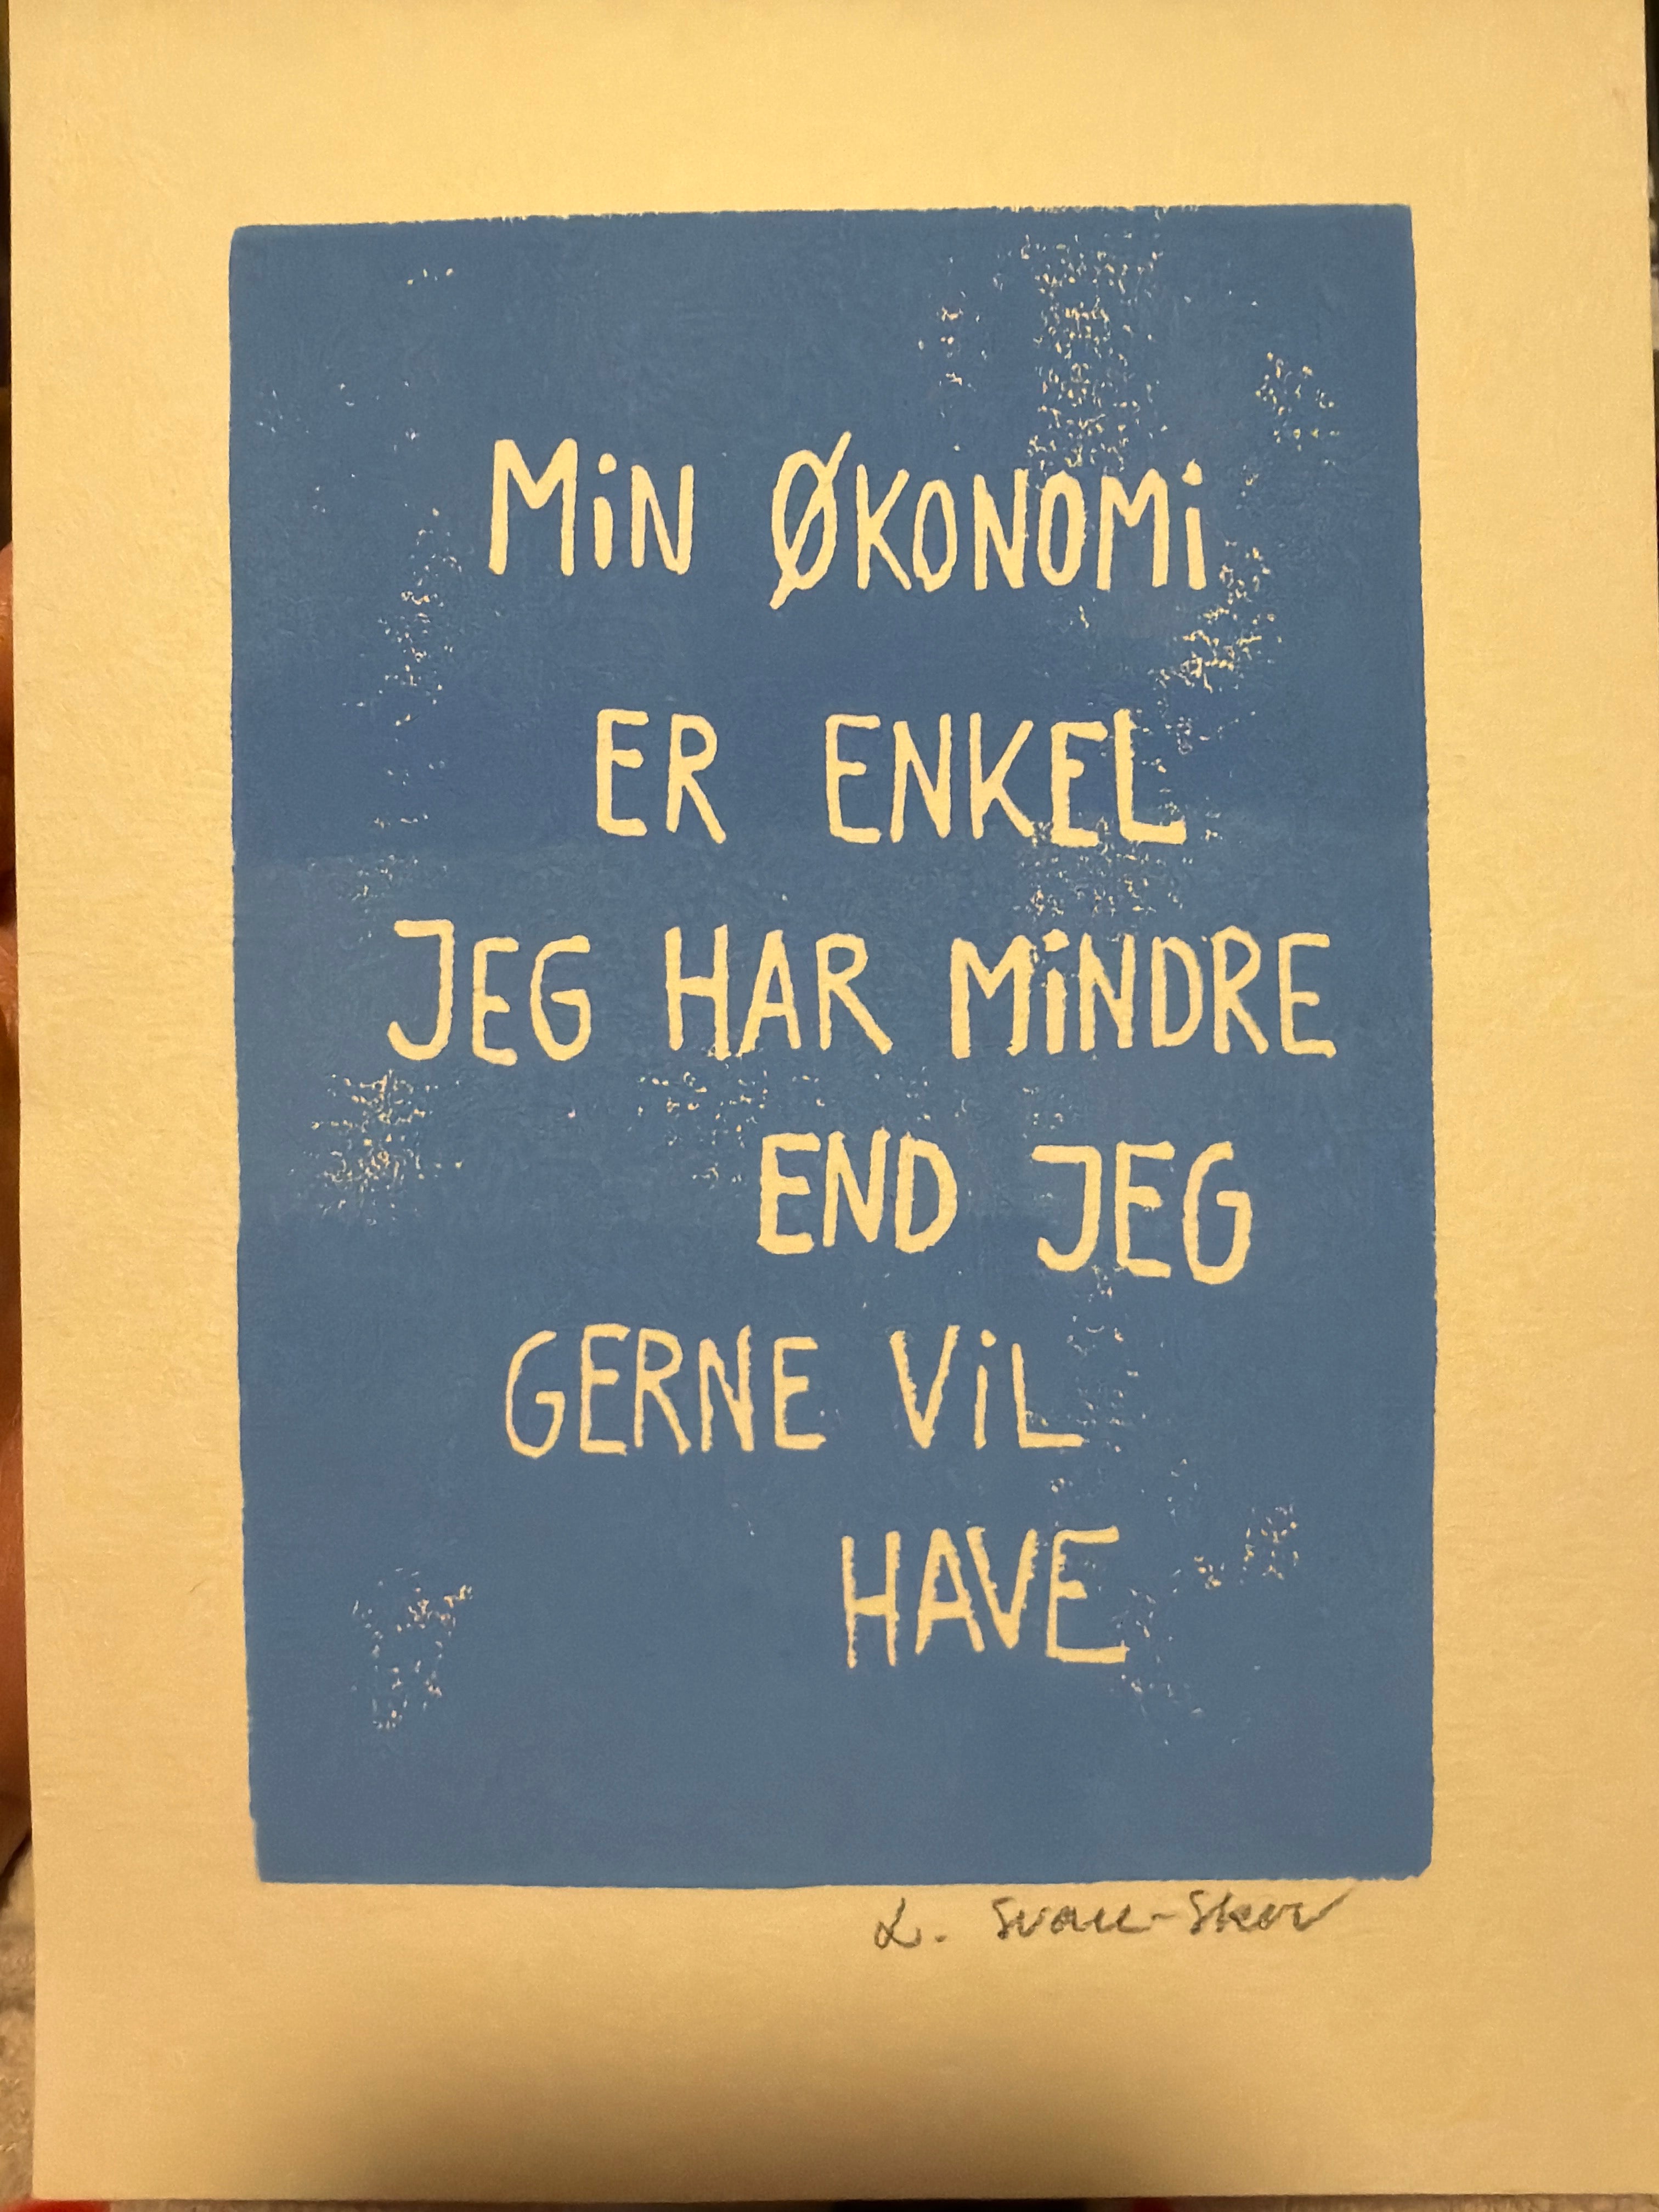 MiN ØKONOMi
ER ENKEL
JEG HAR MiNDRE
END JEG
GERNE ViL
HAVE
L. Svane-Skov